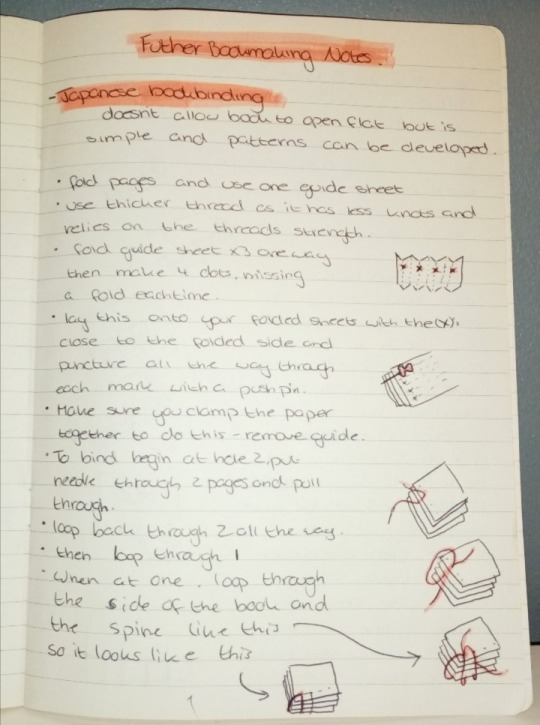 Futher Bookmaking Notes.
- Japanese bookbinding
doesnt allow book to open flat but is
simple and patterns can be developed.
• fold pages and use one guide sheet
• use thicker thread as it has less knots and
relies on the threads strength.
• fold guide sheet x3 one way
then make 4 dots, missing
a fold eachtime.
• lay this onto your folded sheets with the (x)'s
close to the folded side and
puncture all the way through
each mark with a push pin.
• Make sure you clamp the paper
together to do this - remove guide.
• To bind begin at hole 2, put
needle through 2 pages and pull
through.
• loop back through 2 all the way.
• then loop through 1
• When at one, loop through
the side of the book and
the spine like this
so it looks like this